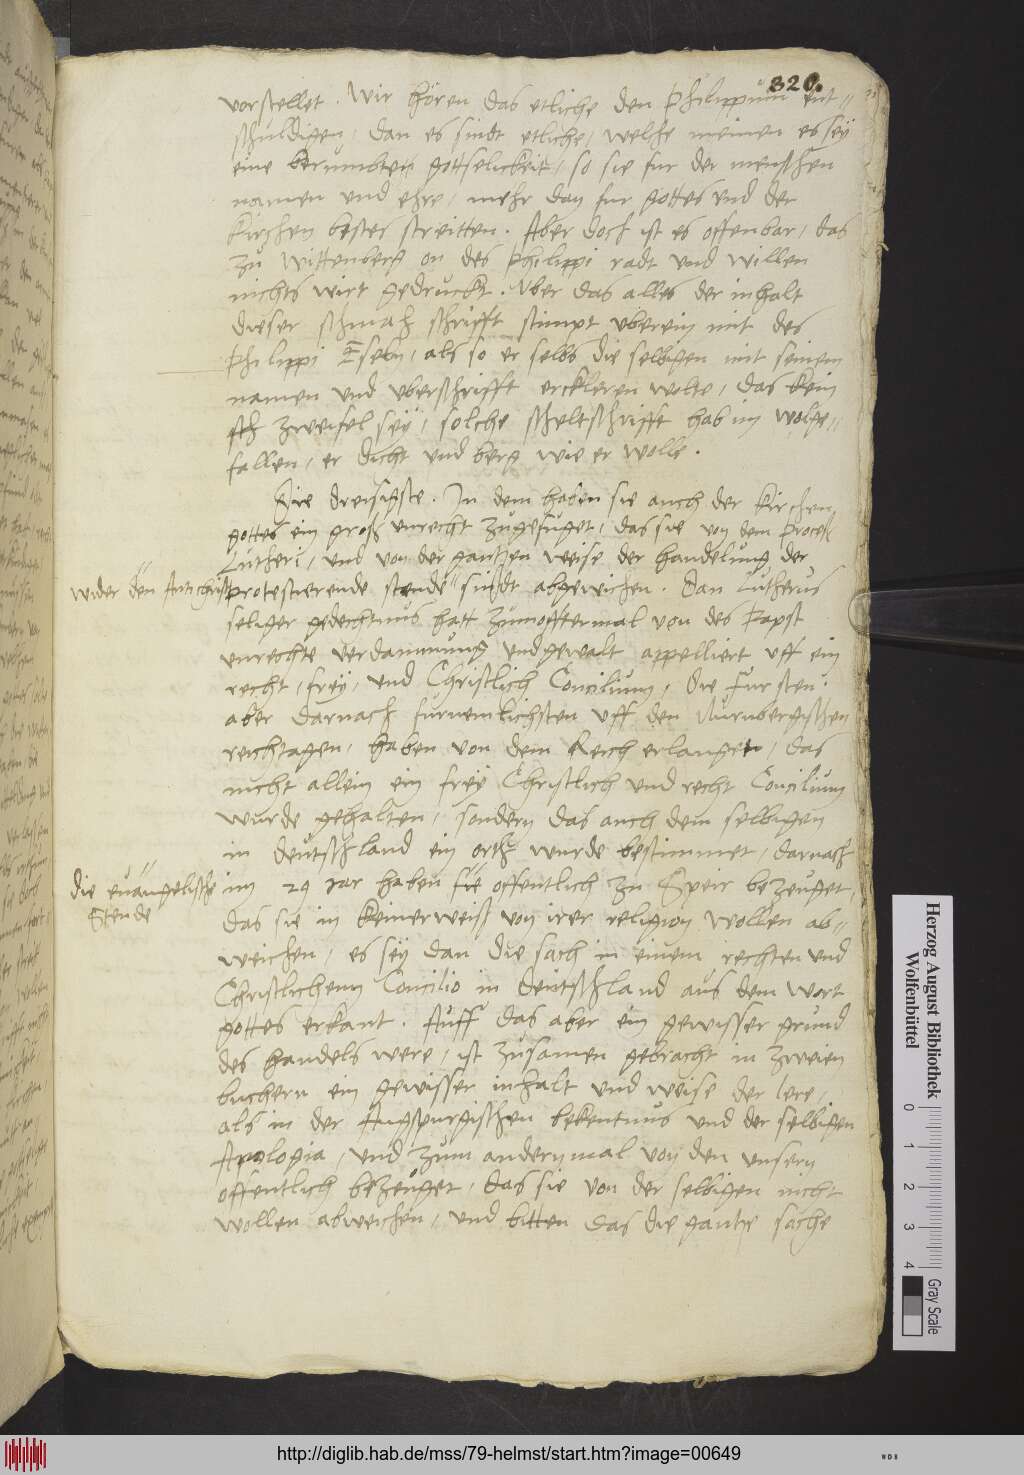 320.
vorstellet. Wir hören das etliche den Philippum ent-
schuldigen, dan es sindt etliche, welche meinen es sey
eine berumbten gottselickeit, so sie fur der menschen
namen und ehre, mehr dan fur gottes und der
Kirchen bestes streitten. Aber doch ist es offenbar, das
zu Wittenberg on des Philippi radt und willen
nichts wirt gedruckt. Uber das alles der inhalt
dieser schmach schrifft stimpt uberein mit des
Philippi als so er selbs die selbigen mit seinem
namen und uberschrifft erckleren wolte, das kein
zweifel sey, solche scheltschrifft hab im wolge-
fallen, er dicht und berg wie er wolle.
Die dreisigste. In dem haben sie auch der Kirchen
gottes ein groß unrecht zugefuget, das sie von dem Proceß
Lutheri, und von der gantzen weise der handelung der
wider den Antichrist
protestierende stende sindt abgewichen. Dan Lutherus
seliger gedechtnus hatt zum offtermal von des Papst
unrechte verdammung und gewalt appelliert uff ein
recht, frey, und Christlich Concilium, die Fursten
aber darnach furnemlichsten uff den Nurnbergischen
reichstagen, haben von dem Reich erlanget, das
nicht allein ein frey Christlich und recht Concilium
wurde gehalten, sondern das auch dem selbigen
in deutschland ein orth wurde bestimmet, darnach
die evangelische
Stende
im 29 jar haben sie offentlich zu Speir bezeuget,
das sie in keinerweiß von irer religion wollen ab-
weichen, es sey dan die sach in einem rechten und
Christlichenn Concilio in deutschland aus dem Wort
gottes erkant. Auff das aber ein gewisser grund
des handels were, ist zusamen gebracht in zweien
buchern ein gewisser inhalt und weise der lere,
als in der Augspurgischen bekentnus und der selbigen
Apologia, und zum andernmal von den unsern
offentlich bezeuget, das sie von der selbigen nicht
wollen abweichen, und bitten das die gantze sache
Herzog August Bibliothek
Wolfenbüttel
0 1 2 3 4
Gray Scale
http://diglib.hab.de/mss/79-helmst/start.htm?image=00649